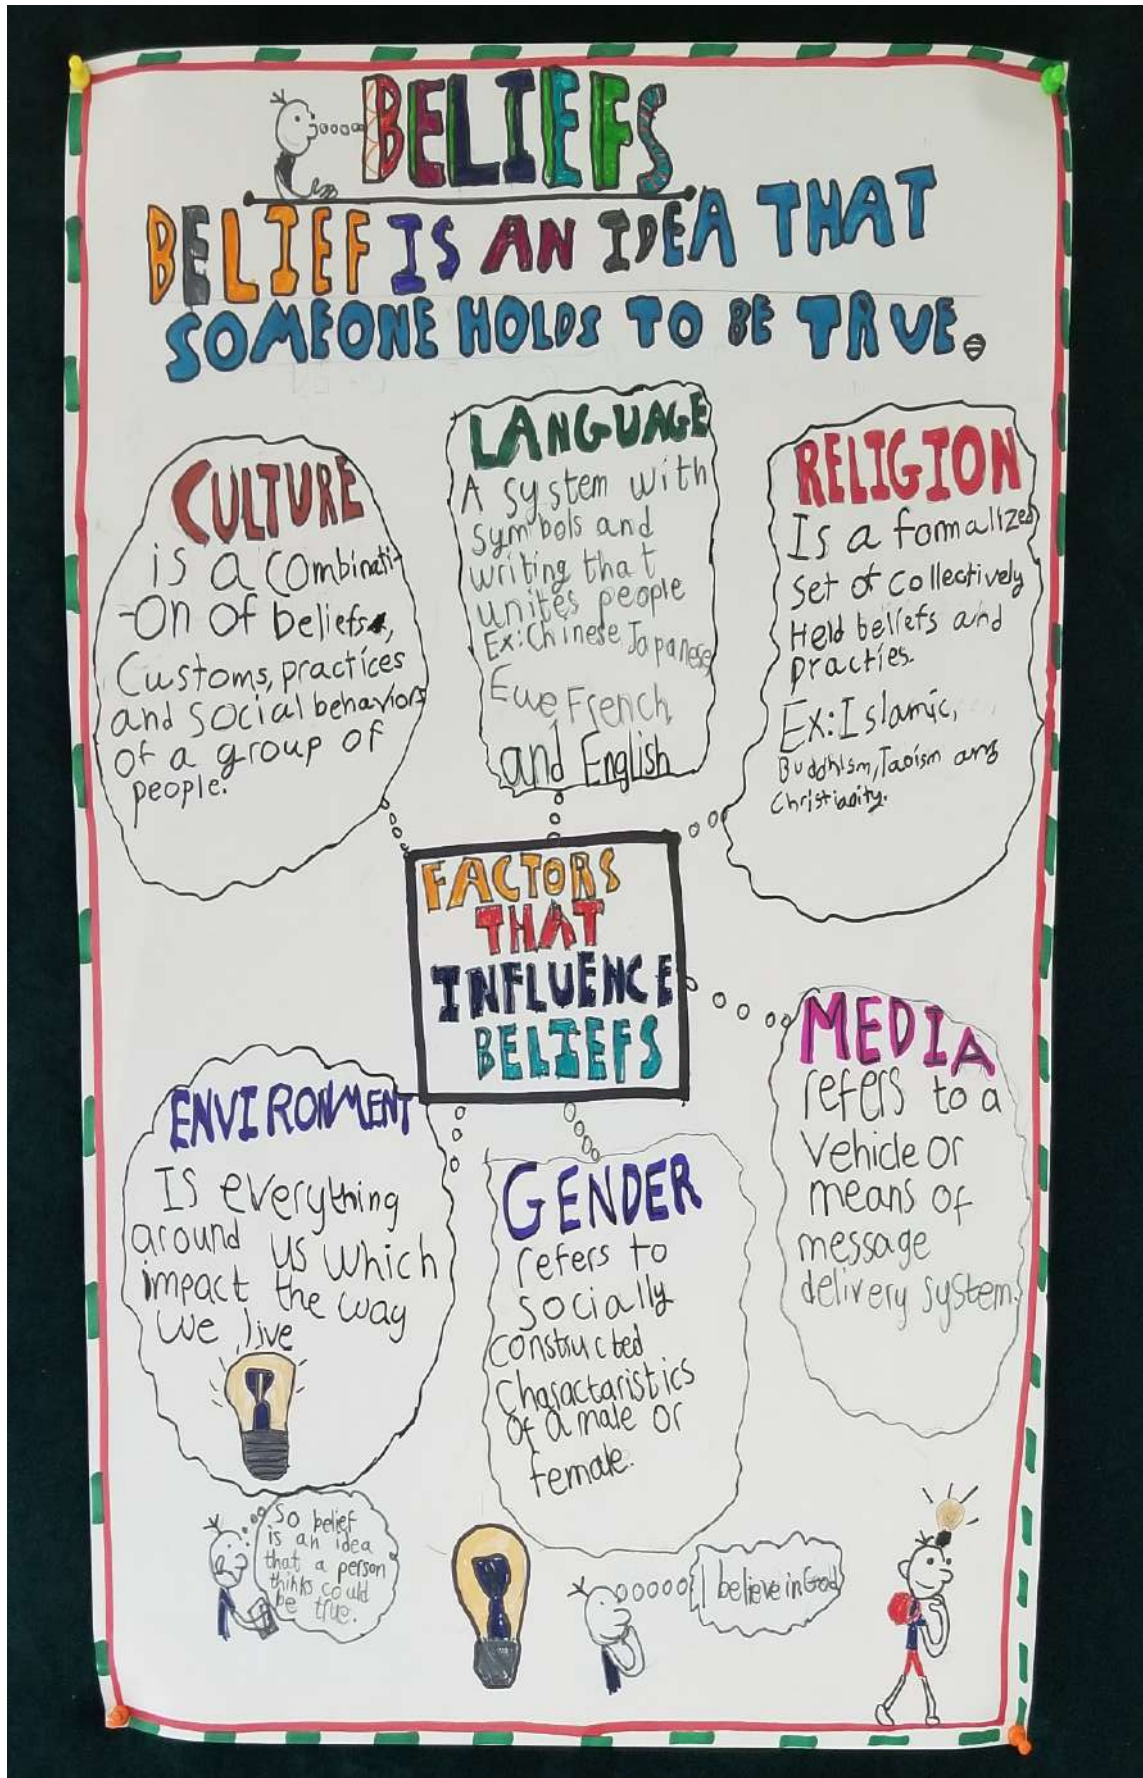 BELIEFS
BELIEF IS AN IDEA THAT
SOMEONE HOLDS TO BE TRUE.
CULTURE
is a combinati-
-on of beliefs,
Customs, practices
and social behaviors
of a group of
people.
LANGUAGE
A system with
symbols and
writing that
unites people
Ex: Chinese Japanese
Ewe, French
and English
RELIGION
Is a formalized
set of collectively
Held beliefs and
practies.
Ex: Islamic,
Buddhism, Taoism and
Christianity.
FACTORS
THAT
INFLUENCE
BELIEFS
MEDIA
refers to a
vehicle or
means of
message
delivery system.
ENVIRONMENT
Is everything
around us which
impact the way
we live
GENDER
refers to
socially
constructed
Charactaristics
of a male or
female.
So belief
is an idea
that a person
thinks could
be true.
I believe in God